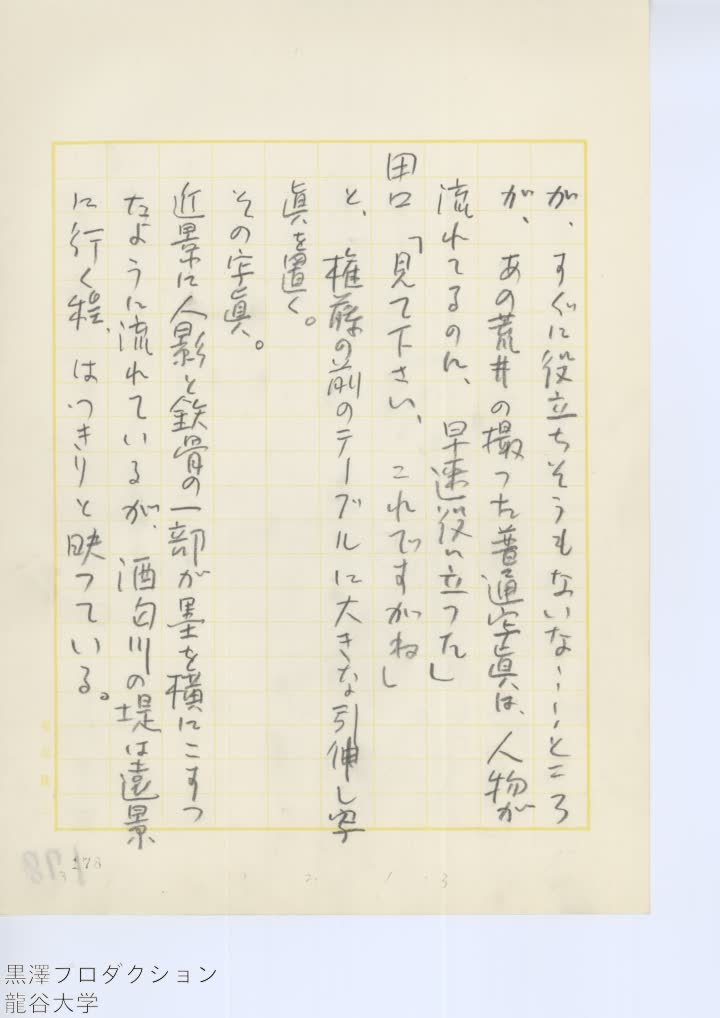 が、すぐに役立ちそうもないな……ところ
が、あの荒井の撮った普通写眞は、人物が
流れてるのに、早速役に立つた」
田口「見て下さい、これですがね」
と、権藤の前のテーブルに大きな引伸し写
眞を置く。
その写眞。
近景に人影と鉄骨の一部が墨を横にこすつ
たように流れているが、酒匂川の堤は遠景
に行く程、はつきりと映つている。
278
黒澤プロダクション
龍谷大学